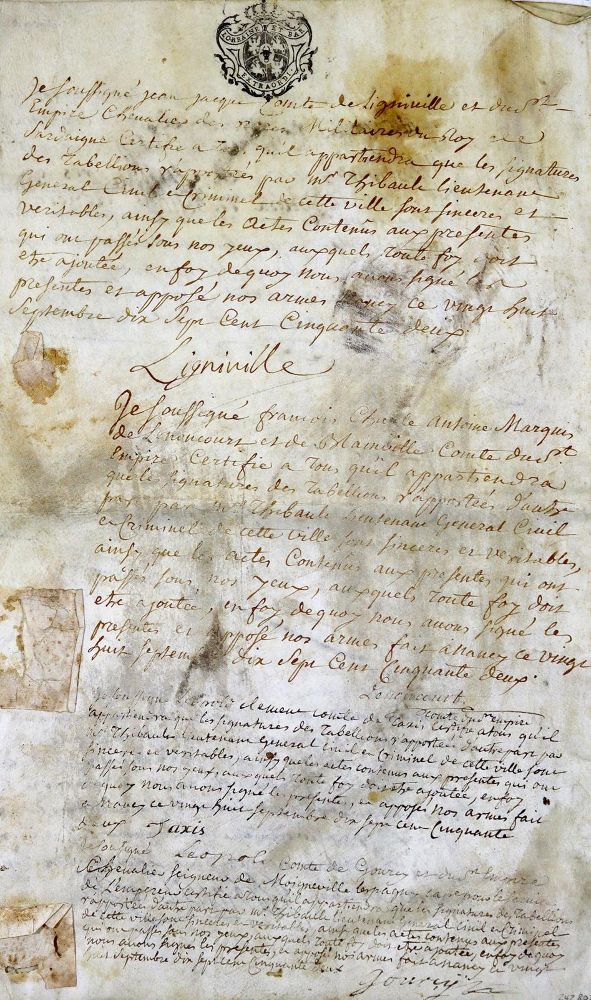 LORRAINE ET BAR
EXTRAORDRE
Je soussigné jean jacque Comte de Ligniville et du St
Empire Chevalier des Militaires du Roy de
Sardaigne Certifie a Tous quil appartiendra que les signatures
des Tabellions r'apportées par mr Thibault lieutenant
General Civil et Criminel de cette ville sont sinceres et
veritables, ainsy que les Actes Contenus aux presentes
qui ont passés sous nos yeux, auxquels toute foy doit
etre ajoutée, en foy dequoy nous avons signé les
presentes et apposé nos armes Nancy ce vingt huit
Septembre dix Sept Cent Cinquante deux.
Ligniville
Je soussigné francois Charle Antoine Marquis
de Lenoncourt et de Blainville Comte du St
Empire, Certifie a Tous quil appartiendra
que les signatures des Tabellions r'apportées d'autre
part par mr Thibault Lieutenant General Civil
et Criminel de cette ville sont sinceres et veritables,
ainsy que les actes Contenus aux presentes qui ont
passés sous nos yeux, auxquels toute foy doit
etre ajoutée, en foy dequoy nous avons signé les
presentes et apposé nos armes fait a Nancy ce vingt
huit septembre dix Sept Cent Cinquante deux.
Lenoncourt
Je soussigné Leopold clement comte de Taxis Comte du St Empire certifie atous quil
appartiendra que les signatures des Tabellions r'apportées dautre part par
mr Thibault Lieutenant General Civil et Criminel de cette ville sont
sinceres et veritables, ainsy que les actes contenus aux presentes qui ont
passés sous nos yeux, auxquels Toute foy doit etre ajoutée, en foy
dequoy nous avons signé les presentes, et apposés nos armes fait
a Nancy ce vingt huit septembre dix sept cent cinquante
deux Taxis
Je soussigné Leopold Comte de Gourcy et du St Empire
Chevalier Seigneur de
de certifie a tous quil appartiendra, que les signatures des Tabellions
r'apportées dautre part par mr Thibault Lieutenant General Civil et Criminel
de cette ville sont sinceres et veritables, ainsy que les actes contenus aux presentes
qui ont passés sous nos yeux auxquels toute foy doit etre ajoutée, en foy dequoy
nous avons signés les presentes, et apposé nos armes fait a Nancy ce vingt
huit Septembre dix sept cent cinquante deux
Gourcy